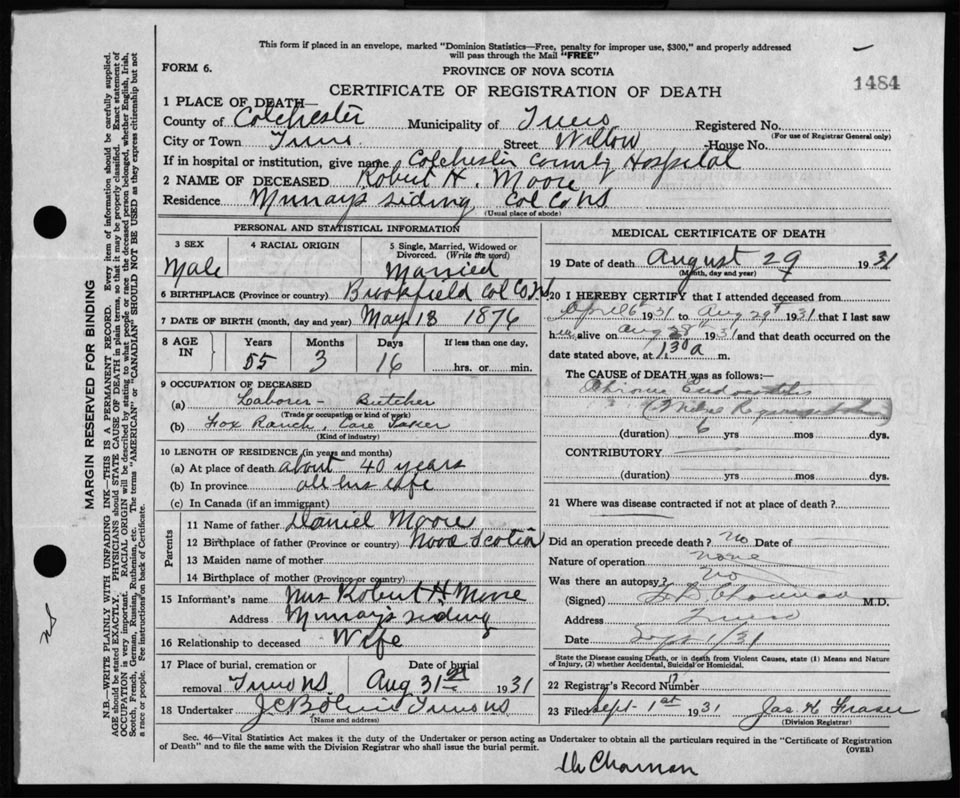 This form if placed in an envelope, marked "Dominion Statistics—Free, penalty for improper use, $300," and properly addressed
will pass through the Mail "FREE"
FORM 6.
PROVINCE OF NOVA SCOTIA
1484
CERTIFICATE OF REGISTRATION OF DEATH
1 PLACE OF DEATH—
County of Colchester Municipality of Truro Registered No.
(For use of Registrar General only)
City or Town Truro Street Willow House No.
If in hospital or institution, give name Colchester County Hospital
2 NAME OF DECEASED Robert H. Moore
Residence Murrays siding Col Co NS
(Usual place of abode)
PERSONAL AND STATISTICAL INFORMATION
3 SEX 4 RACIAL ORIGIN 5 Single, Married, Widowed or
Divorced. (Write the word)
Male Married
6 BIRTHPLACE (Province or country) Brookfield Col Co NS
7 DATE OF BIRTH (month, day and year) May 13 1876
8 AGE IN Years Months Days If less than one day,
55 3 16 hrs. or min.
9 OCCUPATION OF DECEASED
(a) Laborer - Butcher
(Trade or occupation or kind of work)
(b) Fox Ranch, Care Taker
(Kind of industry)
10 LENGTH OF RESIDENCE (in years and months)
(a) At place of death about 40 years
(b) In province all his life
(c) In Canada (if an immigrant)
Parents
11 Name of father Daniel Moore
12 Birthplace of father (Province or country) Nova Scotia
13 Maiden name of mother
14 Birthplace of mother (Province or country)
15 Informant's name Mrs Robert H Moore
Address Murrays siding
16 Relationship to deceased Wife
17 Place of burial, cremation or Date of burial
removal Truro NS Aug 31st 1931
18 Undertaker Truro NS
(Name and address)
MEDICAL CERTIFICATE OF DEATH
19 Date of death August 29 1931
(Month, day and year)
20 I HEREBY CERTIFY that I attended deceased from
April 6 1931 to Aug 29th 1931 that I last saw
him alive on Aug 28th 1931 and that death occurred on the
date stated above, at 1.30 a m.
The CAUSE of DEATH was as follows:—
Chronic Endocarditis
(Mitral Regurgitation)
(duration) 6 yrs mos dys.
CONTRIBUTORY
(duration) yrs mos dys.
21 Where was disease contracted if not at place of death?
Did an operation precede death? no Date of
Nature of operation none
Was there an autopsy? No
(Signed) M.D.
Address Truro
Date Sept 1/31
State the Disease causing Death, or in death from Violent Causes, state (1) Means and Nature
of Injury, (2) whether Accidental, Suicidal or Homicidal.
22 Registrar's Record Number
23 Filed Sept 1st 1931 Jas H Fraser
(Division Registrar)
Sec. 46—Vital Statistics Act makes it duty of the Undertaker or person acting as Undertaker to obtain all the particulars required in the "Certificate of Registration
of Death" and to file the same with the Division Registrar who shall issue the burial permit.
(OVER)
MARGIN RESERVED FOR BINDING
N.B.—WRITE PLAINLY WITH UNFADING INK—THIS IS A PERMANENT RECORD. Every item of information should be carefully supplied.
AGE should be stated EXACTLY. PHYSICIANS should STATE CAUSE OF DEATH in plain terms, so that it may be properly classified. Exact statement of
OCCUPATION is very important. RACIAL ORIGIN will be described by stating to what people or race the deceased person belonged, whether English, Irish,
Scotch, French, German, Russian, Ruthenian, etc. The terms "AMERICAN" or "CANADIAN" SHOULD NOT BE USED as they express citizenship but not
a race or people. Fee instructions on back of Certificate.